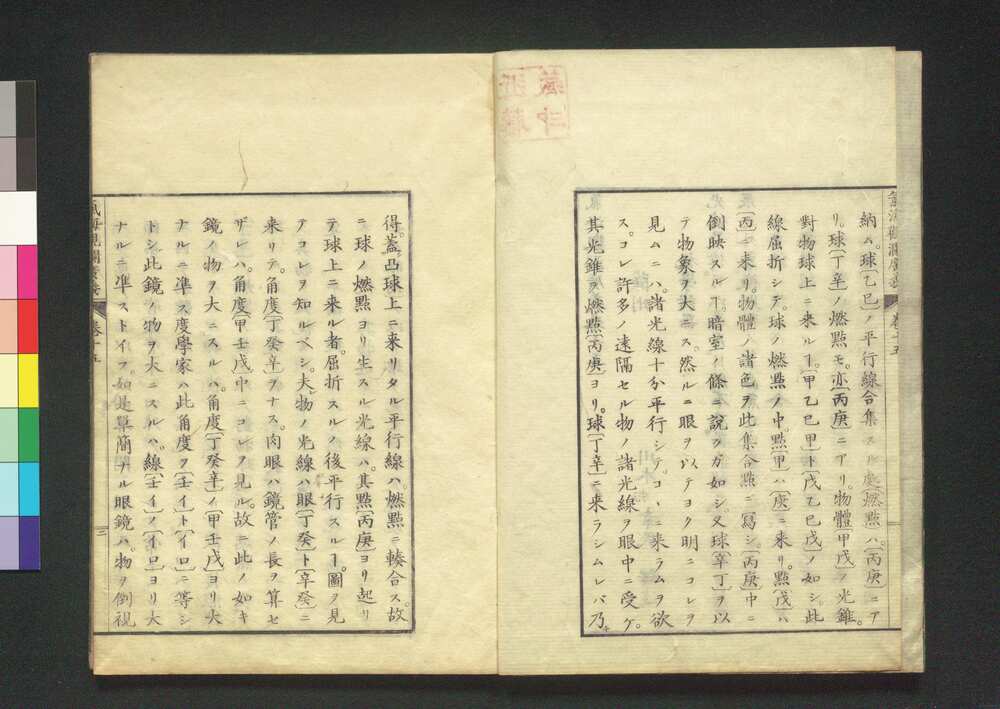 納ム。球〔乙巳〕ノ平行線合集スル處燃點ハ。〔丙庚〕ニア
リ。球〔丁辛〕ノ燃點モ。亦〔丙庚〕ニアリ。物體〔甲戊〕ノ光錐。
對物球上ニ来ルヿ。〔甲乙巳甲〕ト〔戊乙巳戊〕ノ如シ。此
線屈折シテ。球ノ燃點ノ中。點〔甲〕ハ〔庚〕ニ来リ。點〔戊〕ハ
〔丙〕ニ来リ。物體ノ諸色ヲ此集合點ニ寫シ。〔丙庚〕中ニ
倒映スルヿ。暗室ノ條ニ説クガ如シ又球〔辛丁〕ヲ以
テ物象ヲ大ニス。然ルニ眼ヲ以テヨク明ニコレヲ
見ムニハ。諸光線十分平行シテ。コヽニ来ラムヲ欲
ス。コレ許多ノ遠隔セル物ノ諸光線ヲ眼中ニ受ケ。
其光錐ヲ燃點〔丙庚〕ヨリ。球〔丁辛〕ニ来ラシムレバ乃
卷十五
得。蓋凸球上ニ来リタル平行線ハ。燃點ニ輳合ス。故
ニ球ノ燃點ヨリ生スル光線ハ。其點〔丙庚〕ヨリ起リ
テ球上ニ来ル者。屈折スルノ後平行スルヿ。圖ヲ見
アコレヲ知ルベシ。夫物ノ光線ハ眼〔丁癸〕ト〔辛癸〕ニ
来リテ。角度〔丁癸辛〕ヲナス。肉眼ハ鏡管ノ長ヲ算セ
ザレハ。角度〔甲壬戊〕中ニコレヲ見ル。故ニ此ノ如キ
鏡ノ物ヲ大ニスルハ。角度〔丁癸辛〕ノ〔甲壬戊〕ヨリ大
ナルニ準ス度學家ハ此角度ヲ〔壬イ〕ト〔イロ〕ニ等シ
トシ。此鏡ノ物ヲ大ニスルハ。線〔壬イ〕ノ〔イロ〕ヨリ大
ナルニ準ストイフ。如是單簡ナル眼鏡ハ。物ヲ倒視
氣海觀瀾廣義
卷十五
二